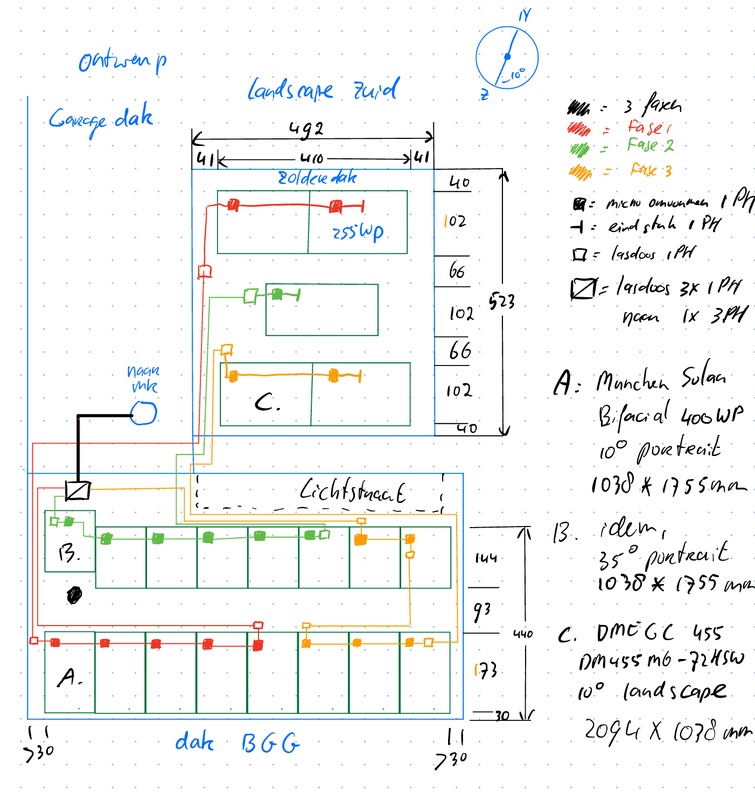 Ontwerp
Garage dak
Landscape Zuid
N
10°
Z
492
41
410
41
Zolderdak
255WP
40
102
66
102
66
102
40
523
C.
naar
mk
Lichtstraat
B.
A.
144
93
173
30
440
>30
dak BGG
>30
= 3 fasen
= Fase 1
= Fase 2
= Fase 3
= micro omvormer 1 PH
= eindstuk 1 PH
= lasdoos 1PH
= lasdoos 3x 1PH
naar 1x 3PH
A: Munchen Solar
Bifacial 400WP
10° portrait
1038 * 1755 mm
B. idem,
35° portrait
1038 * 1755 mm
C. DMEGC 455
DM455M6-72HSW
10° landscape
2094 X 1038 mm